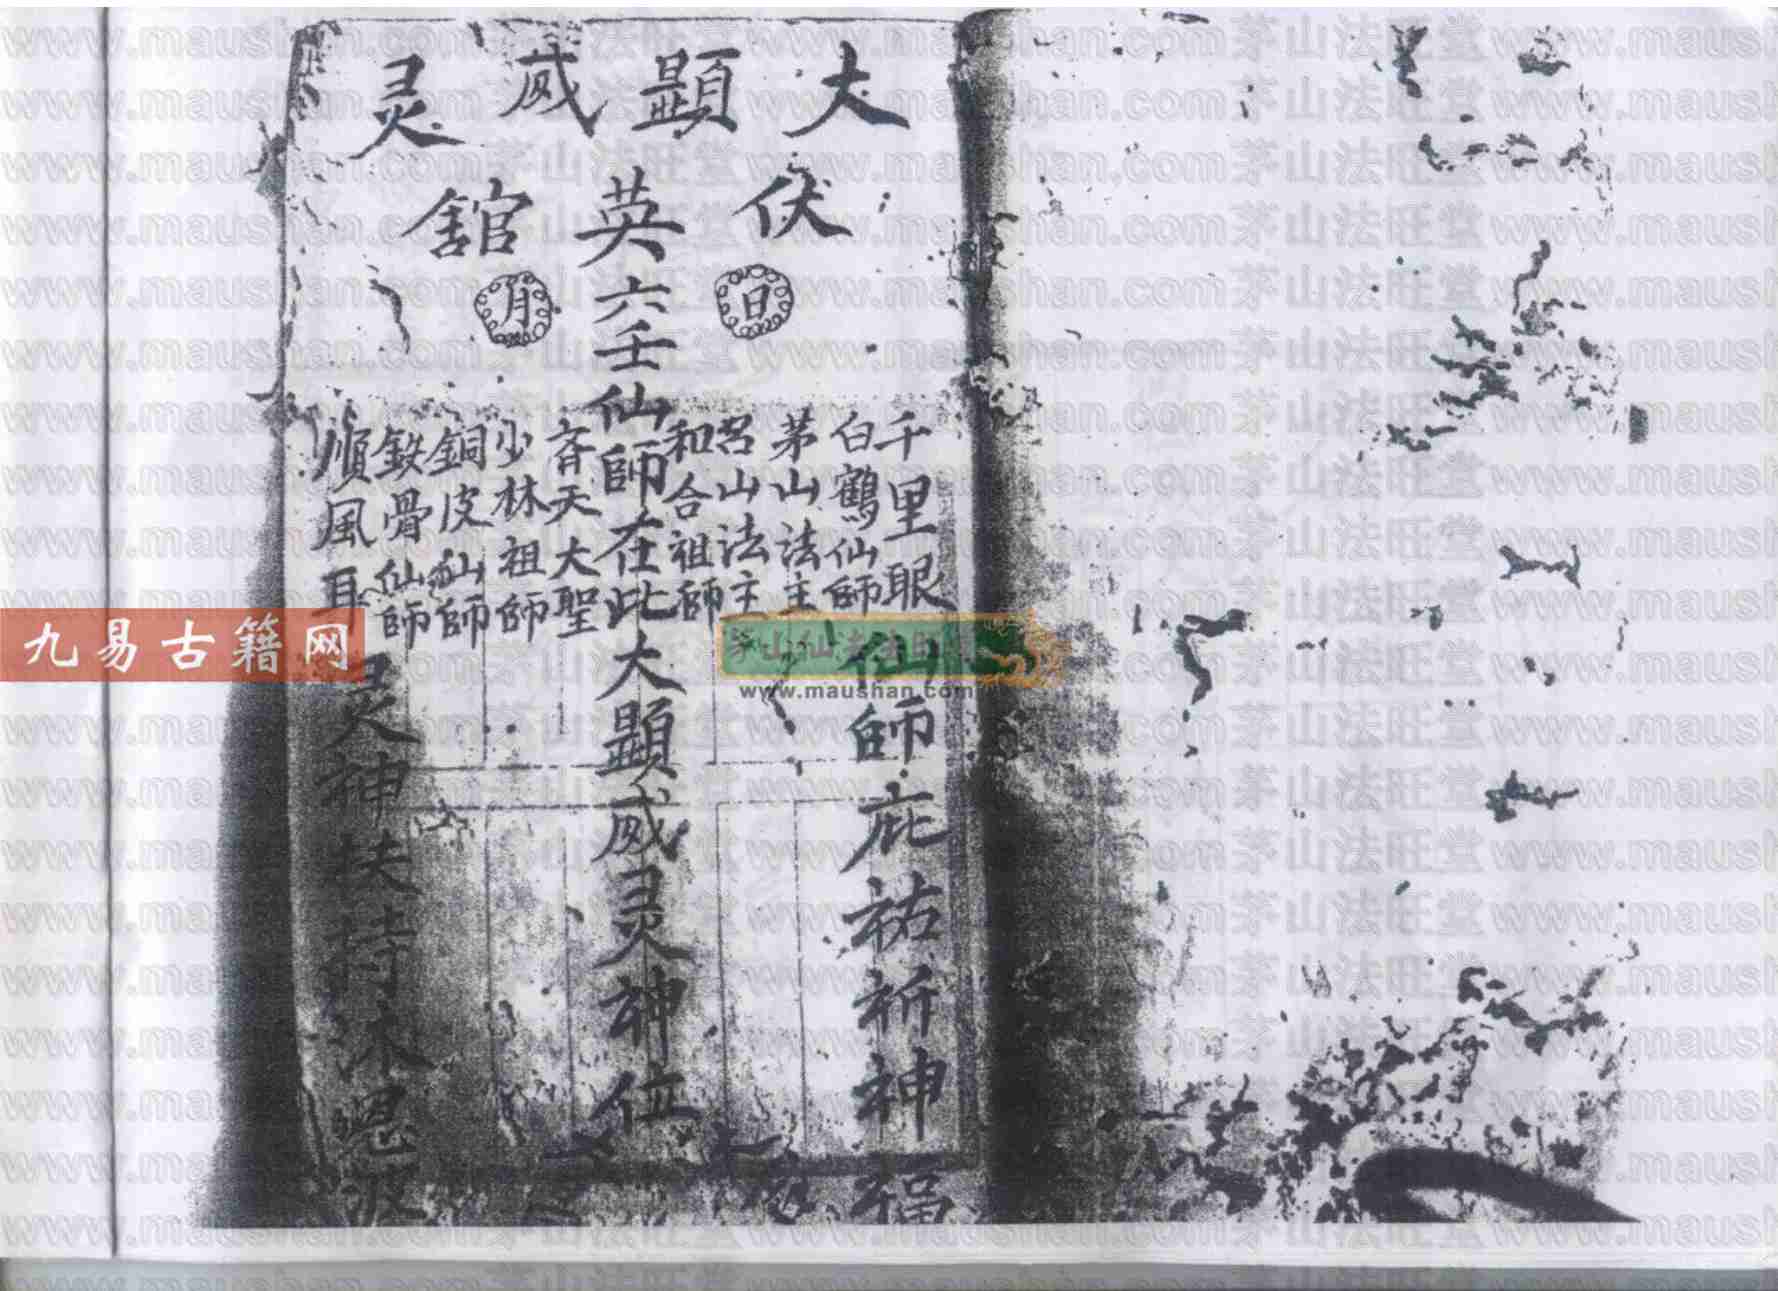 大顯威灵
伏英舘
日
月
千里眼
白鶴仙師
茅山法主
呂山法主
和合祖師
六壬仙師在此大顯威灵神位
斉天大聖
少林祖師
銅皮仙師
鉄骨仙師
順風耳
仙師庇祐祈神福
灵神扶持沐恩
九易古籍网
www.maushan.com
茅山法旺堂www.maushan.com